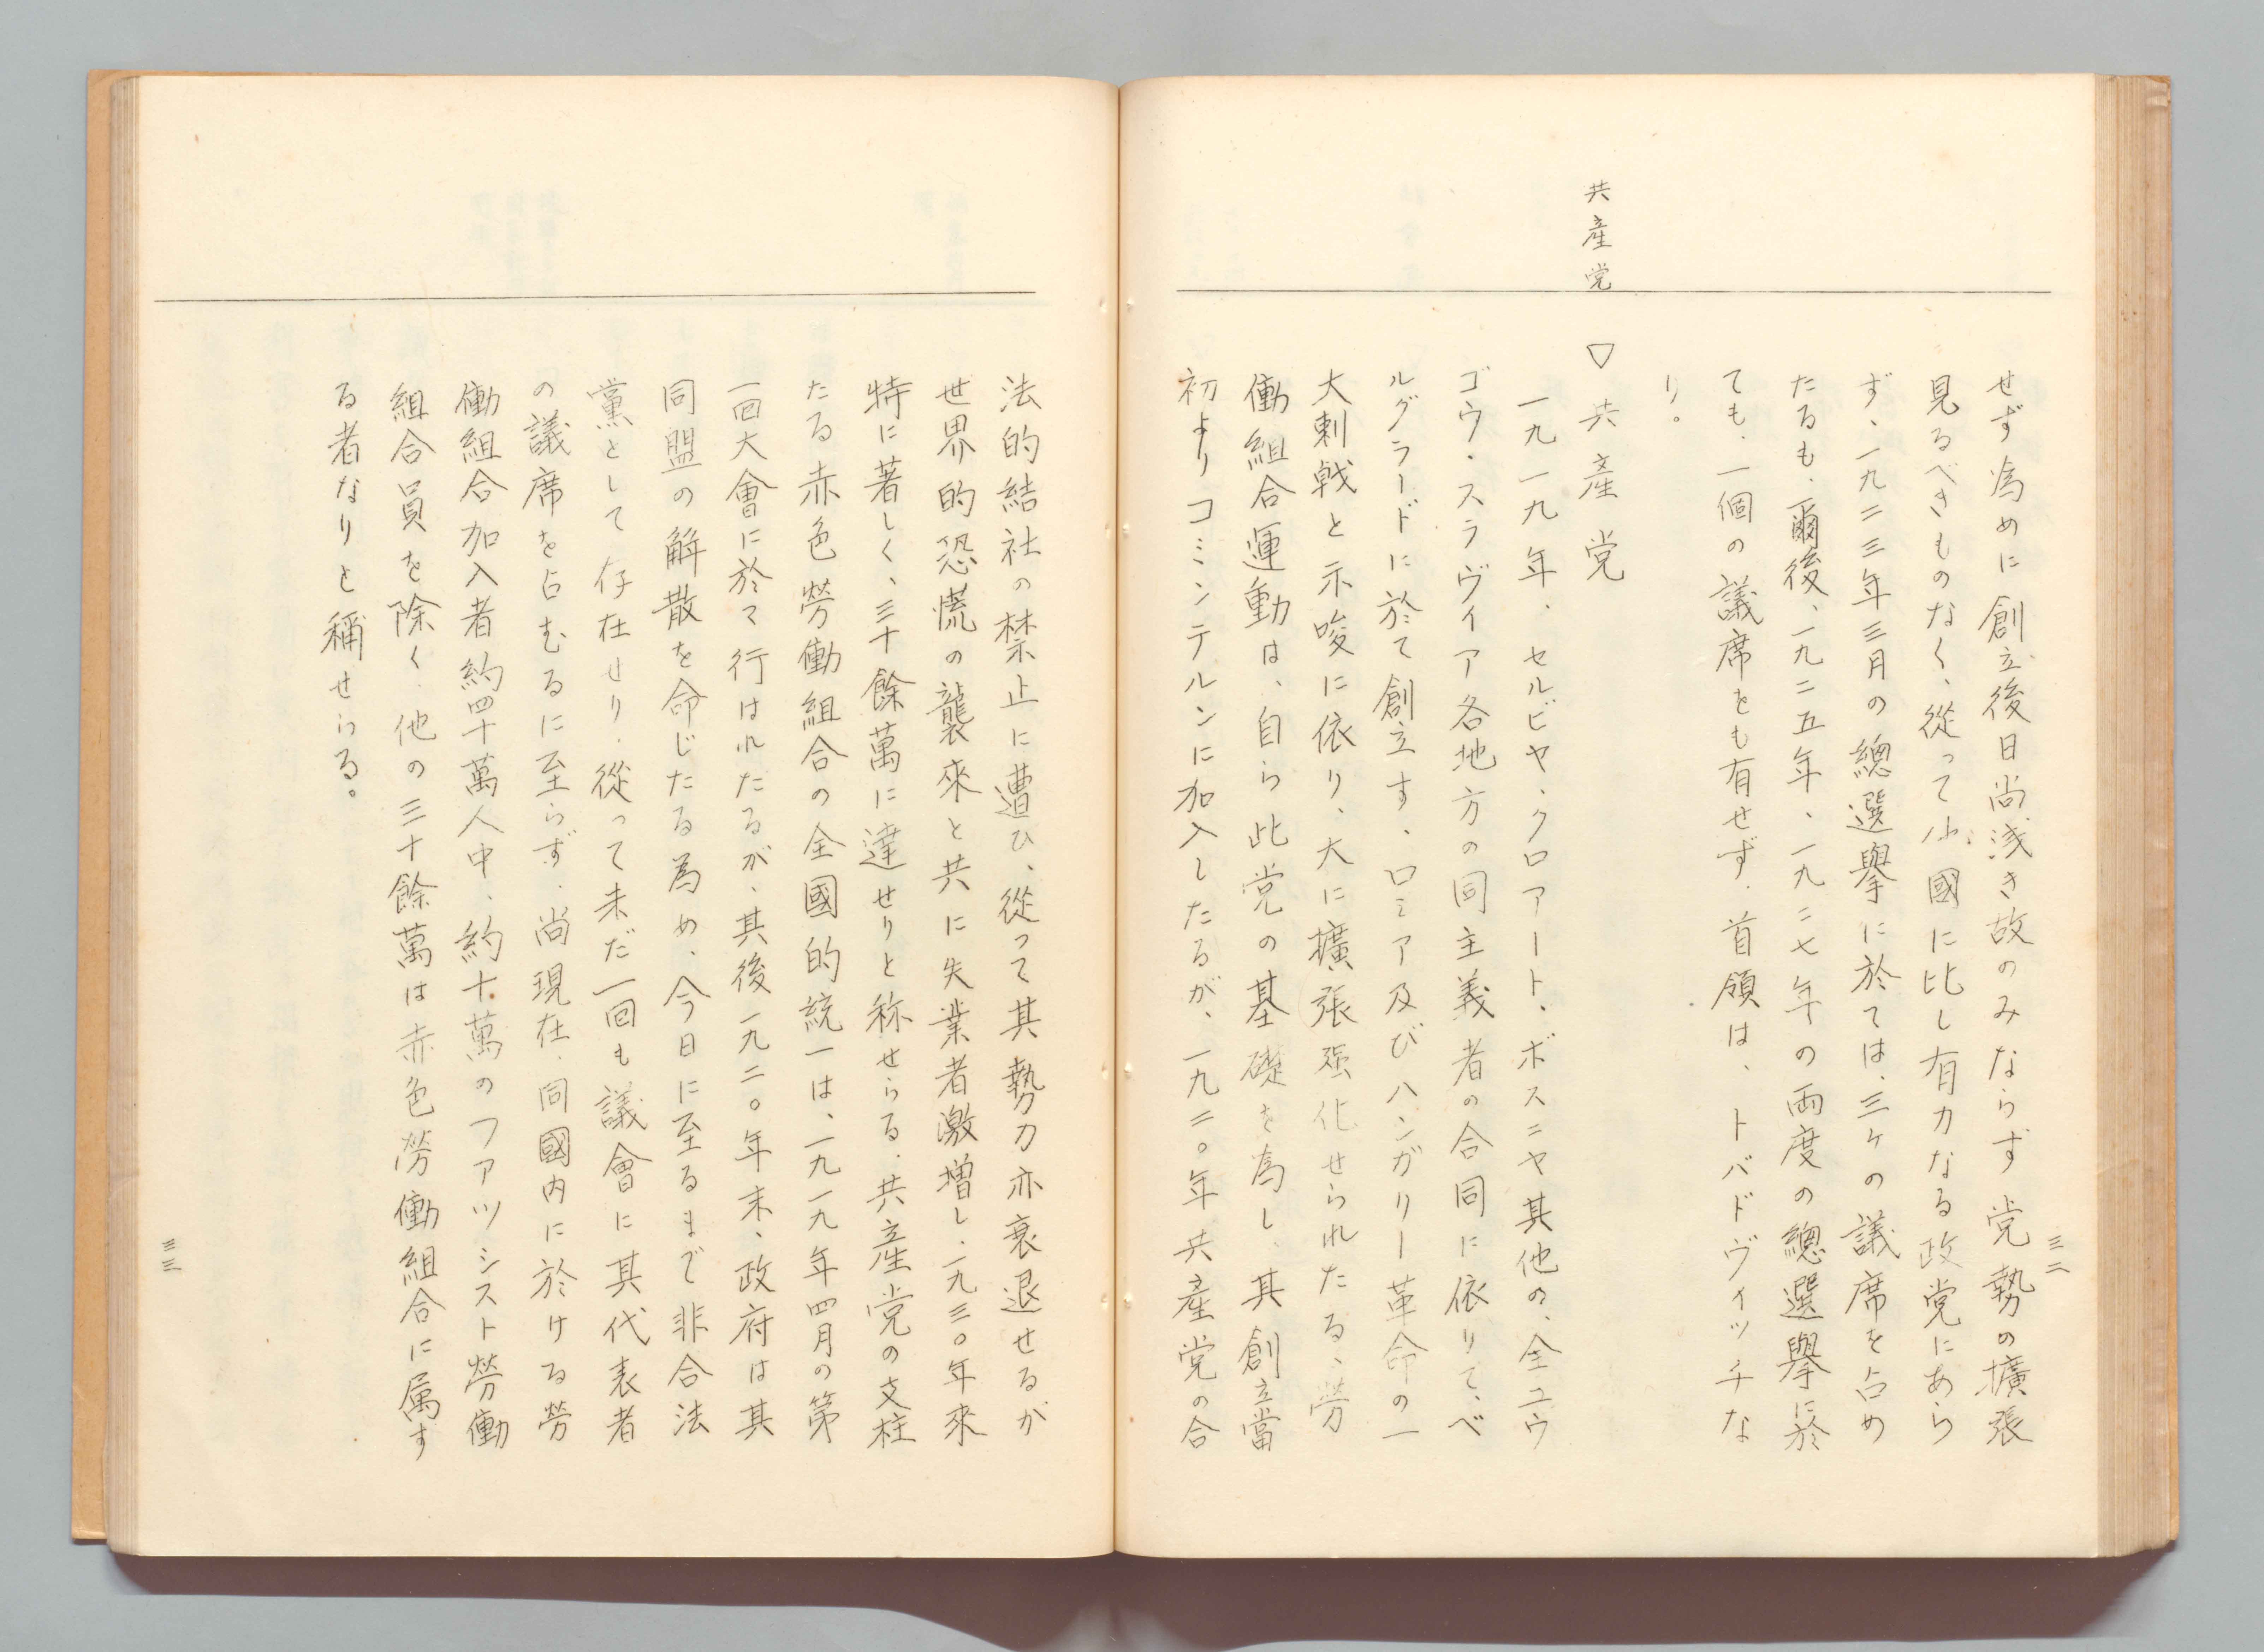 三二
せず為めに創立後日尚浅き故のみならず党勢の擴張
見るべきものなく、從って小國に比し有力なる政党にあら
ず、一九二三年三月の總選擧に於ては、三ケの議席を占め
たるも、爾後、一九二五年、一九二七年の両度の總選擧に於
ても、一個の議席をも有せず、首領は、トバドヴィッチな
り。
共産党
▽共産党
一九一九年、セルビヤ、クロアート、ボスニヤ其他の、全ユウ
ゴウ・スラヴイア各地方の同主義者の合同に依りて、ベ
ルグラードに於て創立す、ロミア及びハンガリー革命の一
大刺戟と示唆に依り、大に擴張强化せられたる、労
働組合運動は、自ら此党の基礎を為し、其創立當
初よりコミンテルンに加入したるが、一九二〇年共産党の合
法的結社の禁止に遭ひ、從って其勢力亦衰退せるが
世界的恐慌の襲來と共に失業者激増し、一九三〇年來
特に著しく、三十餘萬に達せりと称せらる、共産党の支柱
たる赤色勞働組合の全國的統一は、一九一九年四月の第
一回大會に於て行はれたるが、其後一九二〇年末、政府は其
同盟の解散を命じたる為め、今日に至るまで非合法
黨として存在せり、從って未だ一回も議會に其代表者
の議席を占むるに至らず、尚現在、同國内に於ける勞
働組合加入者約四十萬人中、約十萬のファツシスト勞働
組合員を除く、他の三十餘萬は赤色勞働組合に属す
る者なりと稱せらる。
三三